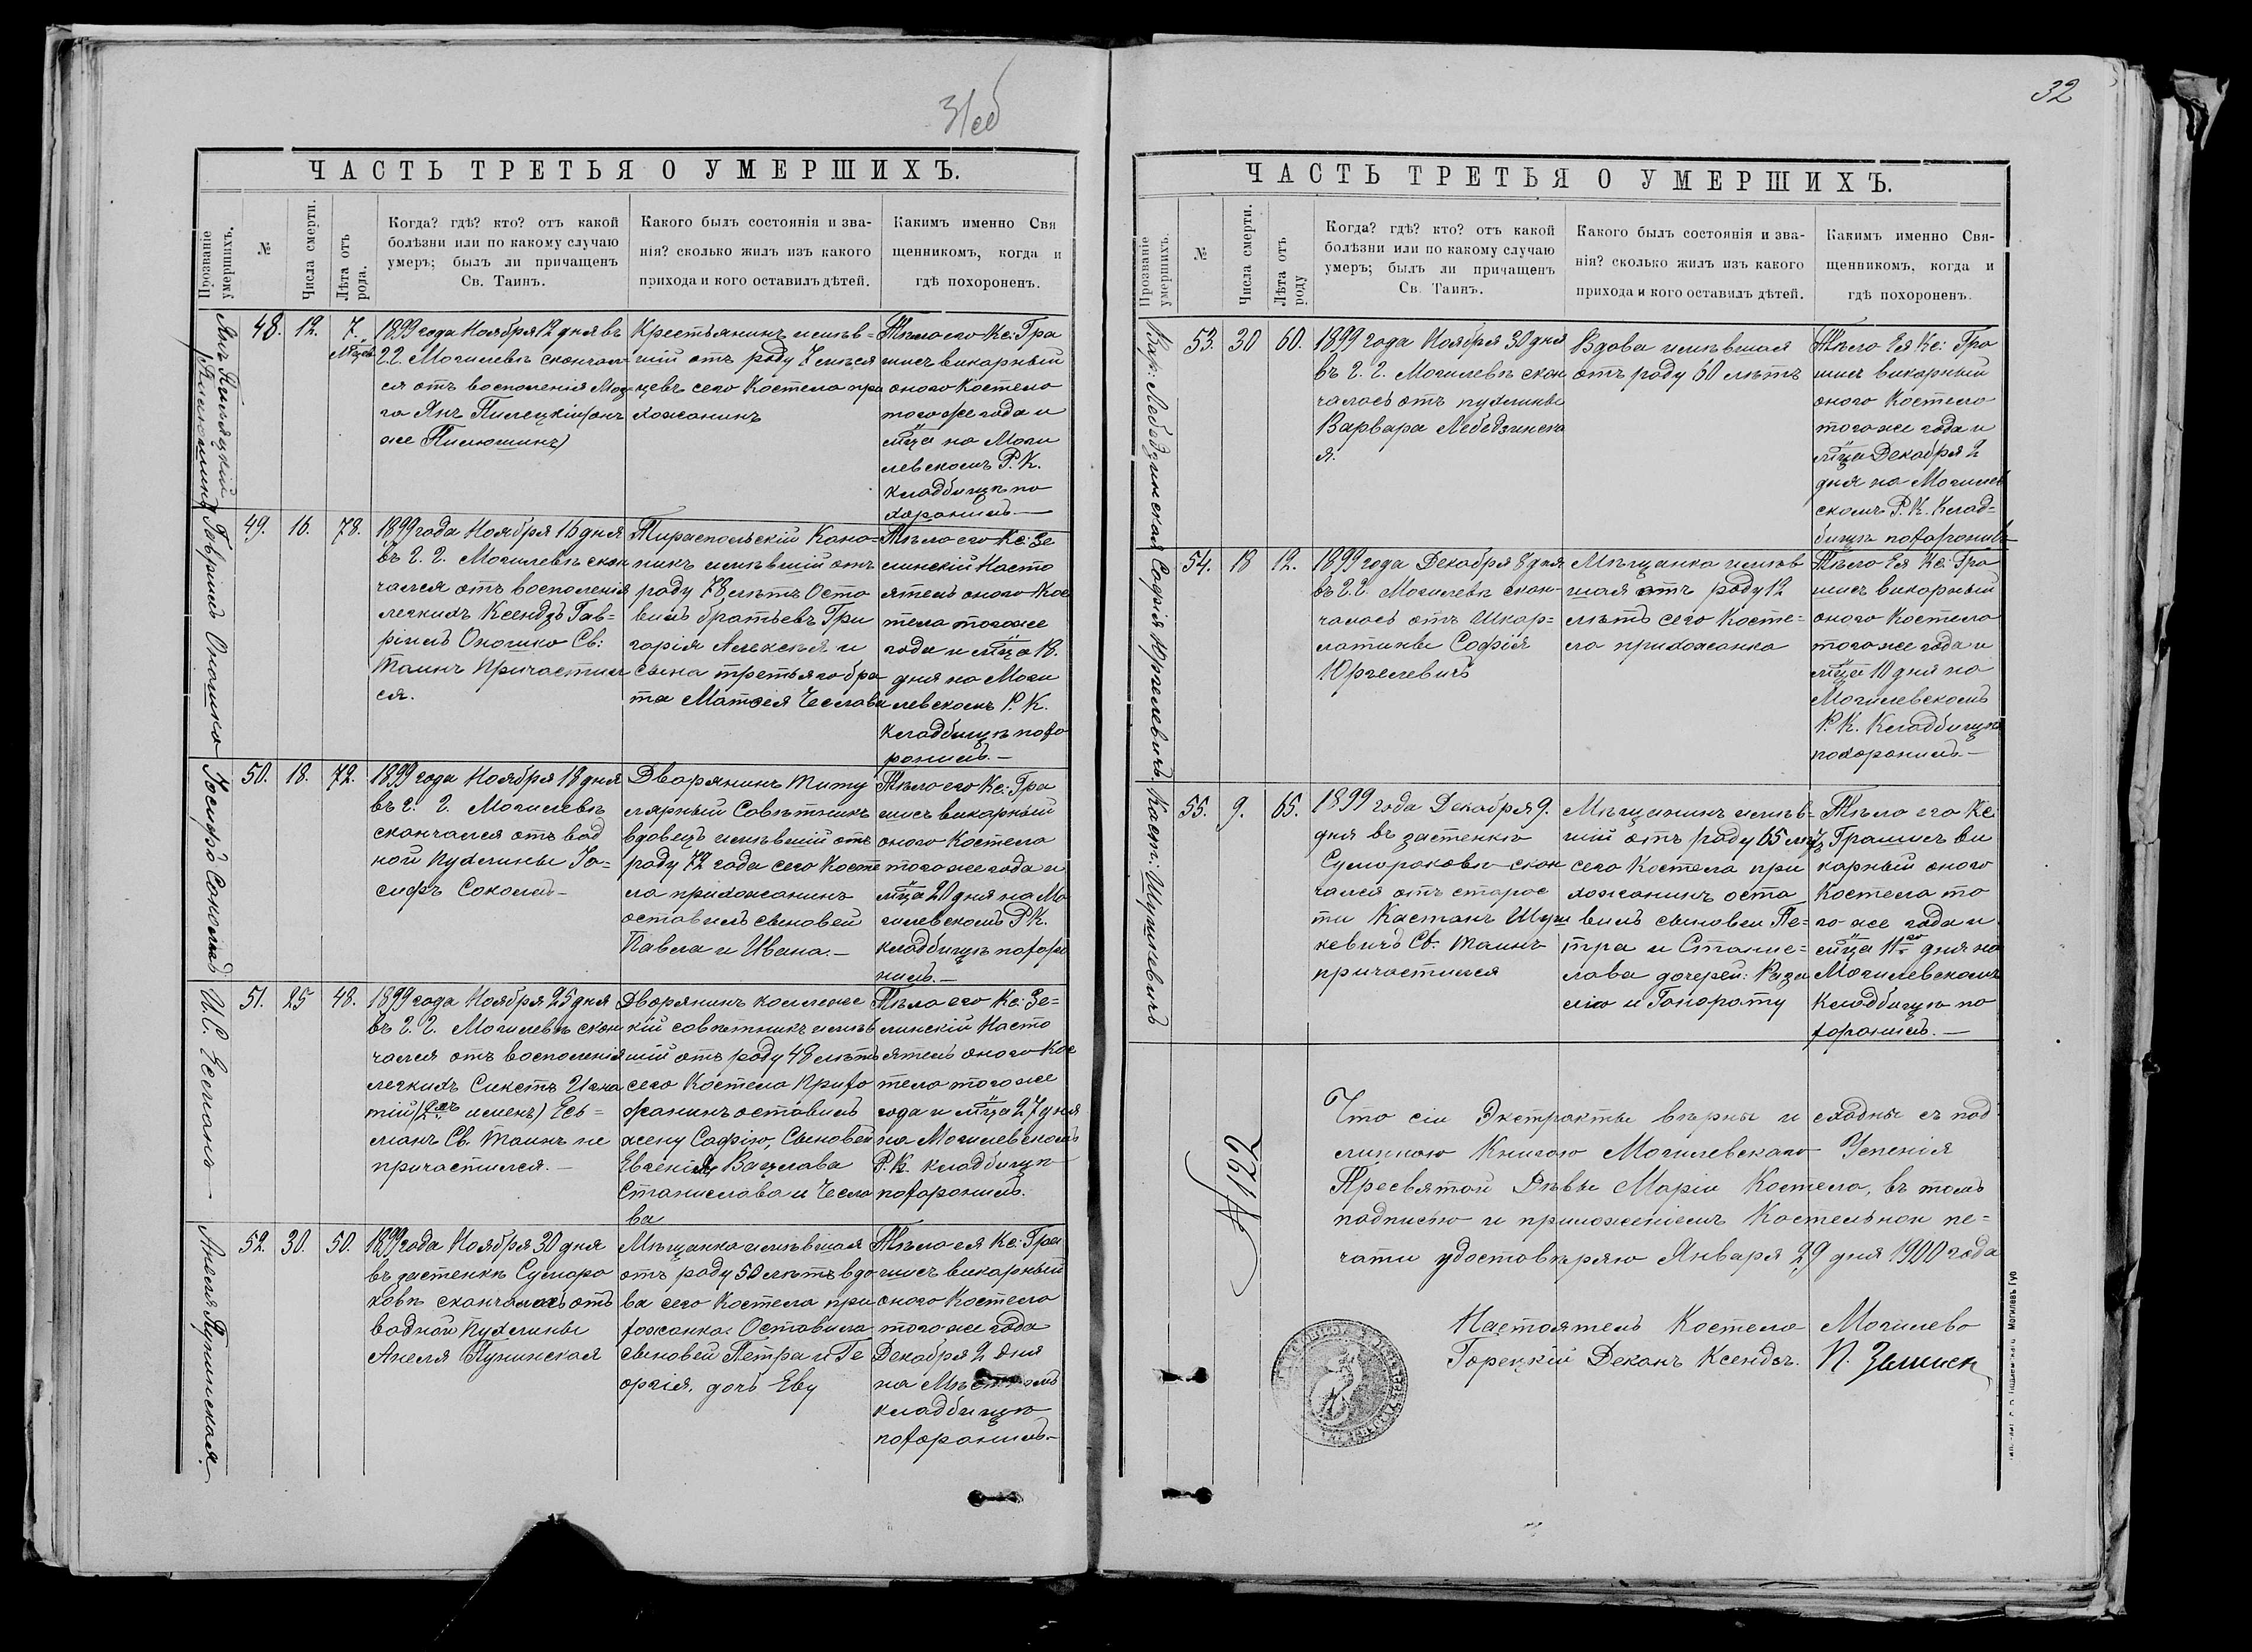 31об
ЧАСТЬ ТРЕТЬЯ О УМЕРШИХЪ.
Прозваніе
умершихъ.
№
Числа смерти.
Лѣта отъ
рода.
Когда? гдѣ? кто? отъ какой
болѣзни или по какому случаю
умеръ; былъ ли причащенъ
Св. Таинъ.
Какого былъ состоянія и зва-
нія? сколько жилъ изъ какого
прихода и кого оставилъ дѣтей.
Какимъ именно Свя
щенникомъ, когда и
гдѣ похороненъ.
Янъ
48.
12.
7.
1899 года Ноября 12 дня въ
Г.Г. Могилевѣ скончал-
ся отъ воспаленія Моз-
га Янъ Пилецкій (онъ
же
Крестьянинъ имѣв-
шій отъ роду 7 мѣся
цевъ сего Костела при
хожанинъ
Тѣло его Кс: Гра
шисъ викарный
оного Костела
того же года и
мца на Моги
левскомъ Р. К.
кладбищѣ по
хоронилъ.—
Гавріилъ Оношко
49.
16.
78.
1899 года Ноября 16 дня
въ Г. Г. Могилевѣ скон
чался отъ воспаленія
легкихъ Ксендзъ Гав-
ріилъ Оношко Св:
Таинъ Причастил
ся.
Тираспольскій Кано-
никъ имѣвшій отъ
роду 78 лѣтъ Оста
вилъ братьевъ Гри
горія Алексѣя и
сына третьяго бра
та Матѳея Чеслава
Тѣло его Кс: Зе
линскій Насто
ятель оного Кос
тела того же
года и мца 18.
дня на Моги
левскомъ Р. К.
Кладбищѣ похо
ронилъ.—
Іосифъ Соколъ
50.
18.
72.
1899 года Ноября 18 дня
въ г. Г. Могилевѣ
скончался отъ вод
ной пухлины Іо-
сифъ Соколъ—
Дворянинъ Титу
лярный Совѣтникъ
вдовецъ имѣвшій отъ
роду 72 года сего Косте
ла прихожанинъ
оставилъ сыновей
Павла и Ивана.—
Тѣло его Кс: Гра
шисъ викарный
оного Костела
того же года и
мца 20 дня на Мо
гилевскомъ Р. К.
кладбищѣ похоро
нилъ.—
И. С. Есьманъ
51.
25
48.
1899 года Ноября 25 дня
въ Г. Г. Могилевѣ скон
чался отъ воспаленія
легкихъ Сикстъ Игна
тій (2хъ именъ) Есь=
манъ Св. Таинъ не
причастился.—
Дворянинъ коллежс
кій совѣтникъ имѣв
шій отъ роду 48 лѣтъ
сего Костела Прихо
жанинъ оставилъ
жену Софію, Сыновей
Евгенія, Вацлава
Станислава и Чесла
ва
Тѣло его Кс: Зе=
линскій Насто
ятель оного Кос
тела того же
года и мца 27 дня
на Могилевскомъ
Р. К. кладбищѣ
похоронилъ.
Анеля Пунинская.
52.
30.
50.
1899 года Ноября 30 дня
въ застенкѣ Сумаро
ковѣ скончалась отъ
водной Пухлины
Анеля Пунинская
Мѣщанка имѣвшая
отъ роду 50 лѣтъ вдо
ва сего Костела при
хожанка. Оставила
сыновей Петра и Ге
оргія, дочь Еву
Тѣло ея Кс: Гра
шисъ викарный
оного Костела
того же года
Декабря 2 дня
на
кладбищѣ
похоронилъ.—
32
ЧАСТЬ ТРЕТЬЯ О УМЕРШИХЪ.
Прозваніе
умершихъ.
№
Числа смерти.
Лѣта отъ
роду
Когда? гдѣ? кто? отъ какой
болѣзни или по какому случаю
умеръ; былъ ли причащенъ
Св. Таинъ.
Какого былъ состоянія и зва-
нія? сколько жилъ изъ какого
прихода и кого оставилъ дѣтей.
Какимъ именно Свя-
щенникомъ, когда и
гдѣ похороненъ.
Вар: Лебедзинская
53.
30
60.
1899 года Ноября 30 дня
въ Г. Г. Могилевѣ скон
чалась отъ пухлины
Варвара Лебедзинска
я.
Вдова имѣвшая
отъ роду 60 лѣтъ
Тѣло Ея Кс: Гра
шисъ викарный
оного Костела
того же года и
мца Декабря 2
дня на Могилев
скомъ Р. К. Клад-
бищѣ похоронилъ—
Софія Юргелевичъ.
54.
18
12.
1899 года Декабря 8 дня
въ Г. Г. Могилевѣ скон-
чалась отъ Шкар=
латины Софія
Юргелевичъ
Мѣщанка имѣв
шая отъ роду 12
лѣтъ сего Косте=
ла прихожанка
Тѣло Ея Кс: Гра
шисъ викарный
оного Костела
того же года и
мца 10 дня на
Могилевскомъ
Р. К. Кладбищѣ
похоронилъ—
Каст: Шушкевичъ
55.
9.
65.
1899 года Декабря 9.
дня въ застенкѣ
Сумароковѣ скон
чался отъ старос
ти Кастанъ Шуш
кевичъ Св. Таинъ
причастился
Мѣщанинъ имѣв-
шій отъ роду 65 лѣтъ
сего Костела при
хожанинъ оста
вилъ сыновей Пе=
тра и Станис=
лава дочерей: Роза
лію и Гонорату
Тѣло его Кс:
Грашисъ ви
карный оного
Костела то
го же года и
мца 11го дня на
Могилевскомъ
Кладбищѣ по
хоронилъ.—
№ 122
Что сіи Экстракты вѣрны и сходны съ под
линною Книгою Могилевскаго Успенія
Пресвятой Дѣвы Маріи Костела, въ томъ
подписью и приложеніемъ Костельной пе=
чати удостовѣряю Января 29 дня 1900 года
Настоятель Костела Могилево
Горецкій Деканъ Ксендзъ. П.
Могилевъ Губ